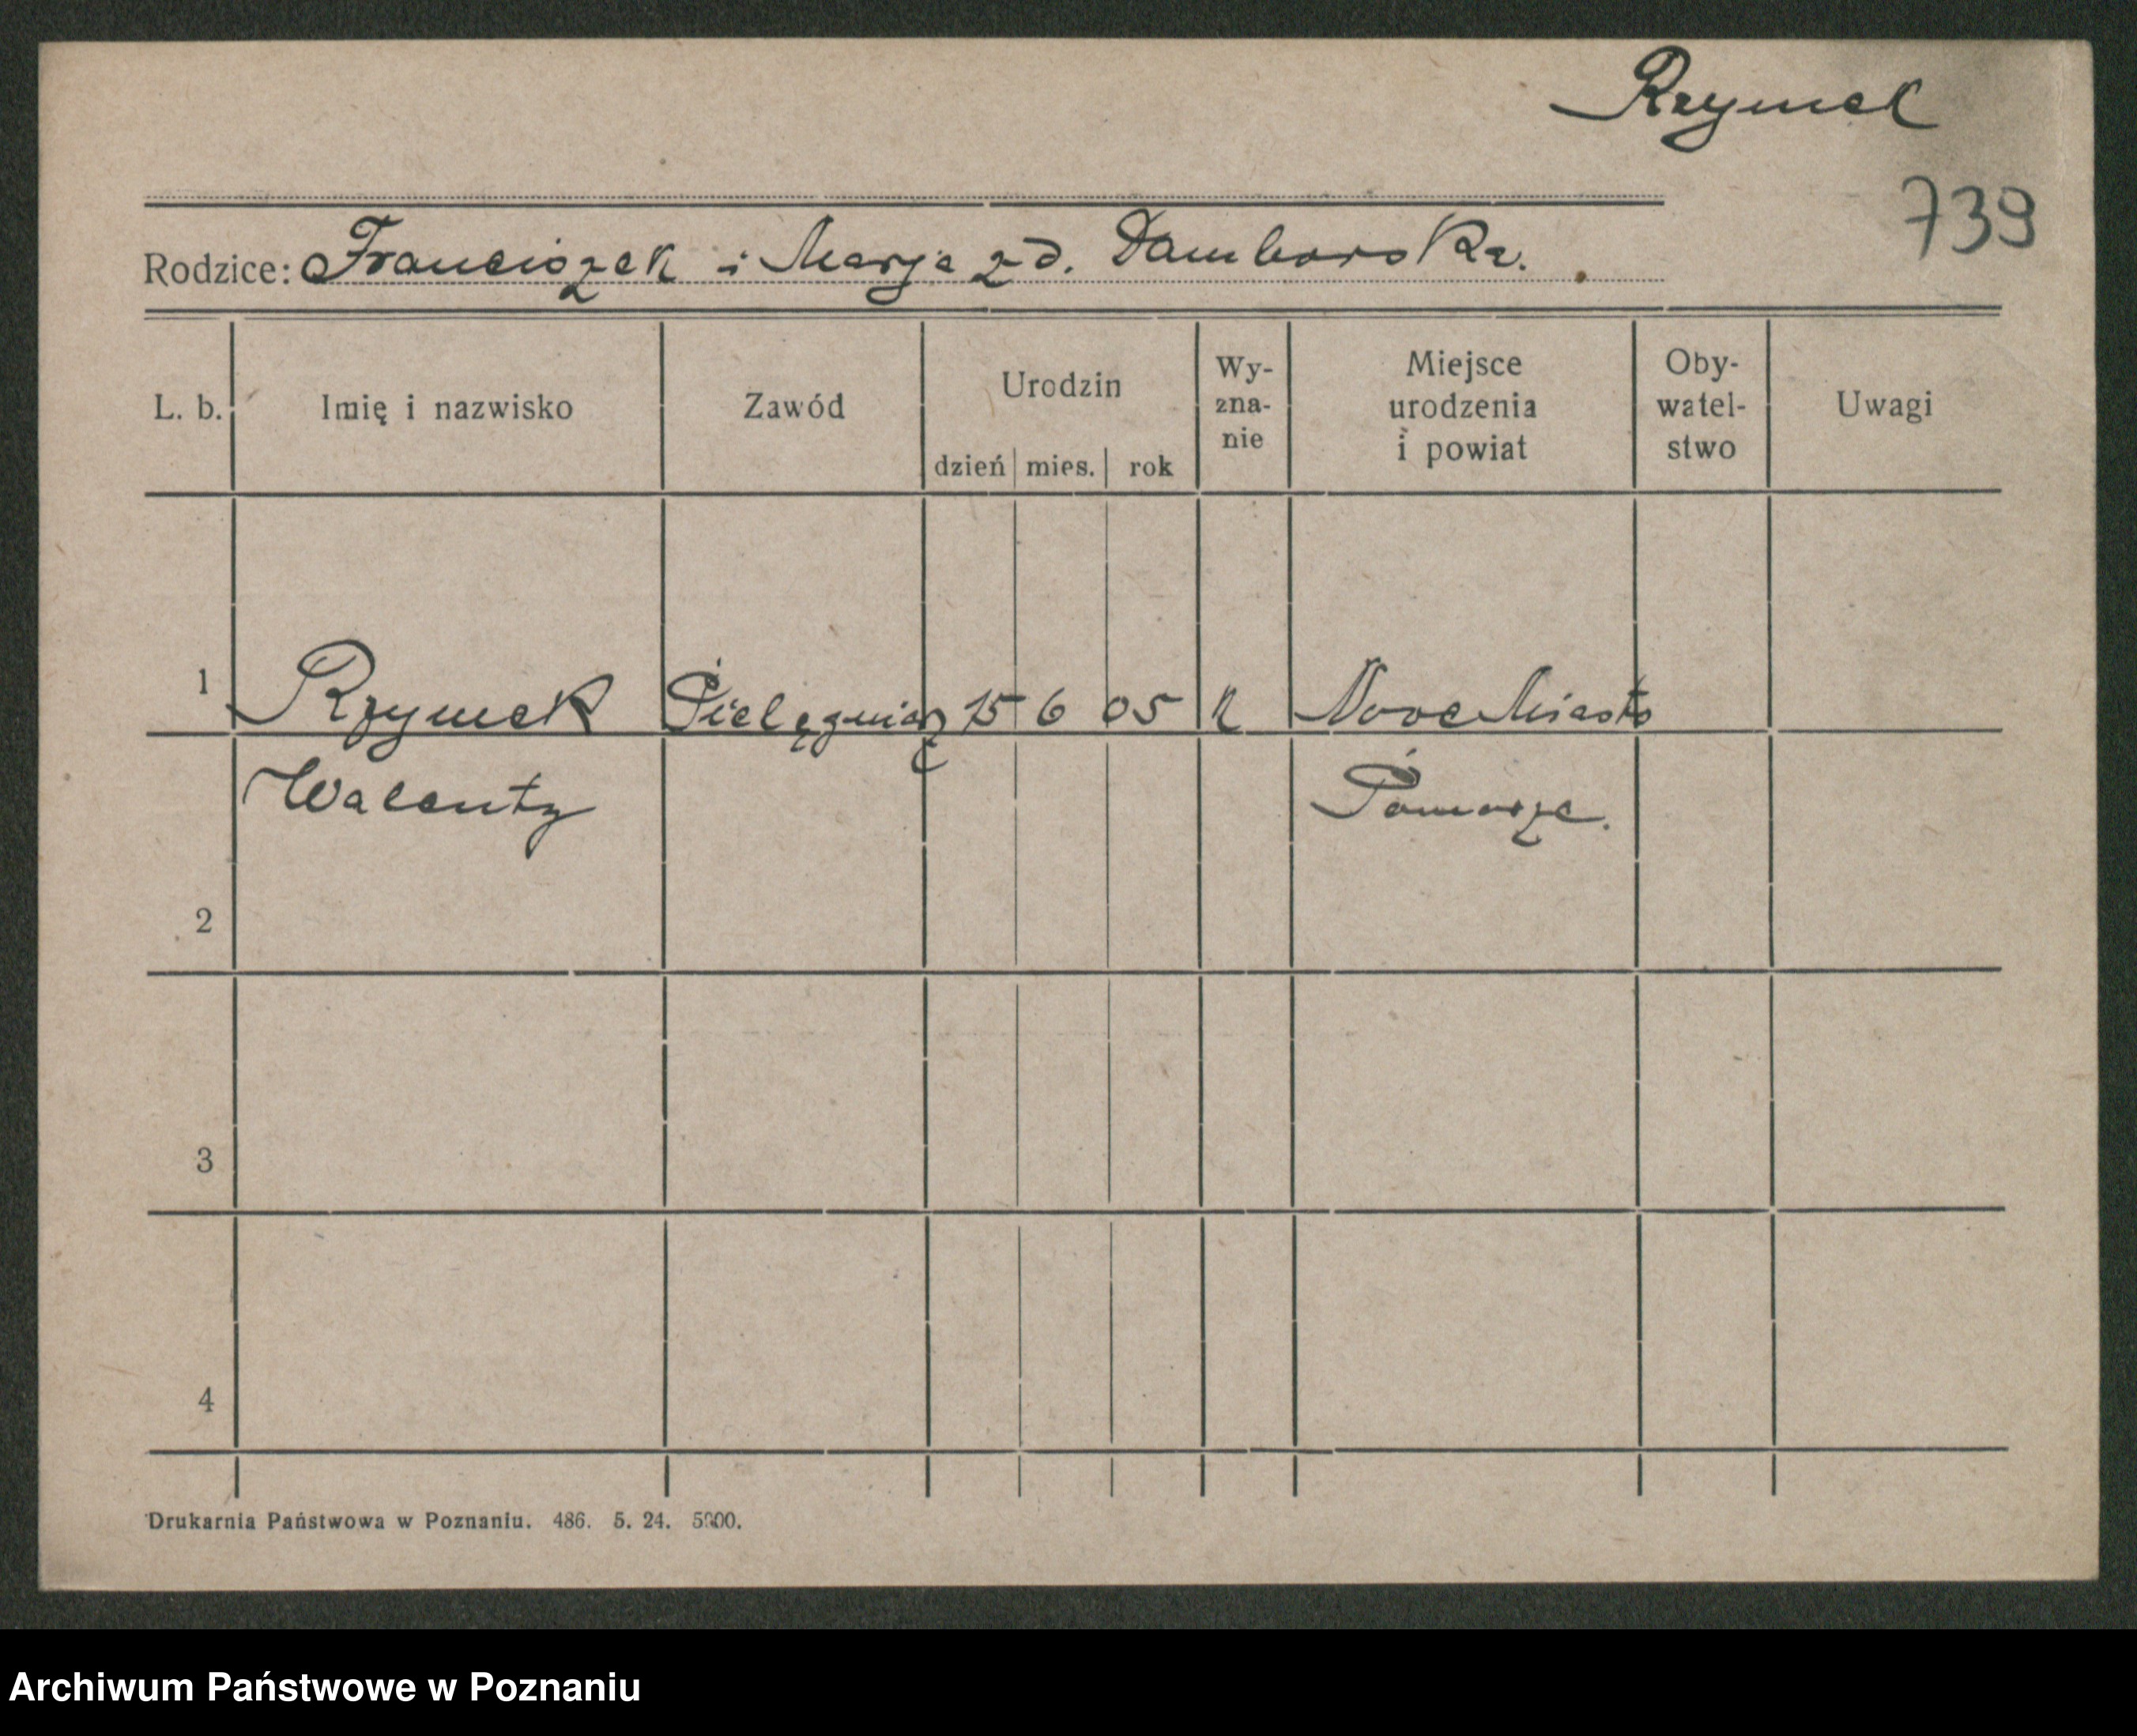 Rzymek
739
Rodzice: Franciszek i Marja zd. Damborska.
L. b. Imię i nazwisko Zawód Urodzin dzień mies. rok Wy-zna-nie Miejsce urodzenia i powiat Oby-watel-stwo Uwagi
1 Rzymek 15 6 05 k Nove Miasto
Walenty Pomorze.
2
3
4
Drukarnia Państwowa w Poznaniu. 486. 5. 24. 5000.
Archiwum Państwowe w Poznaniu